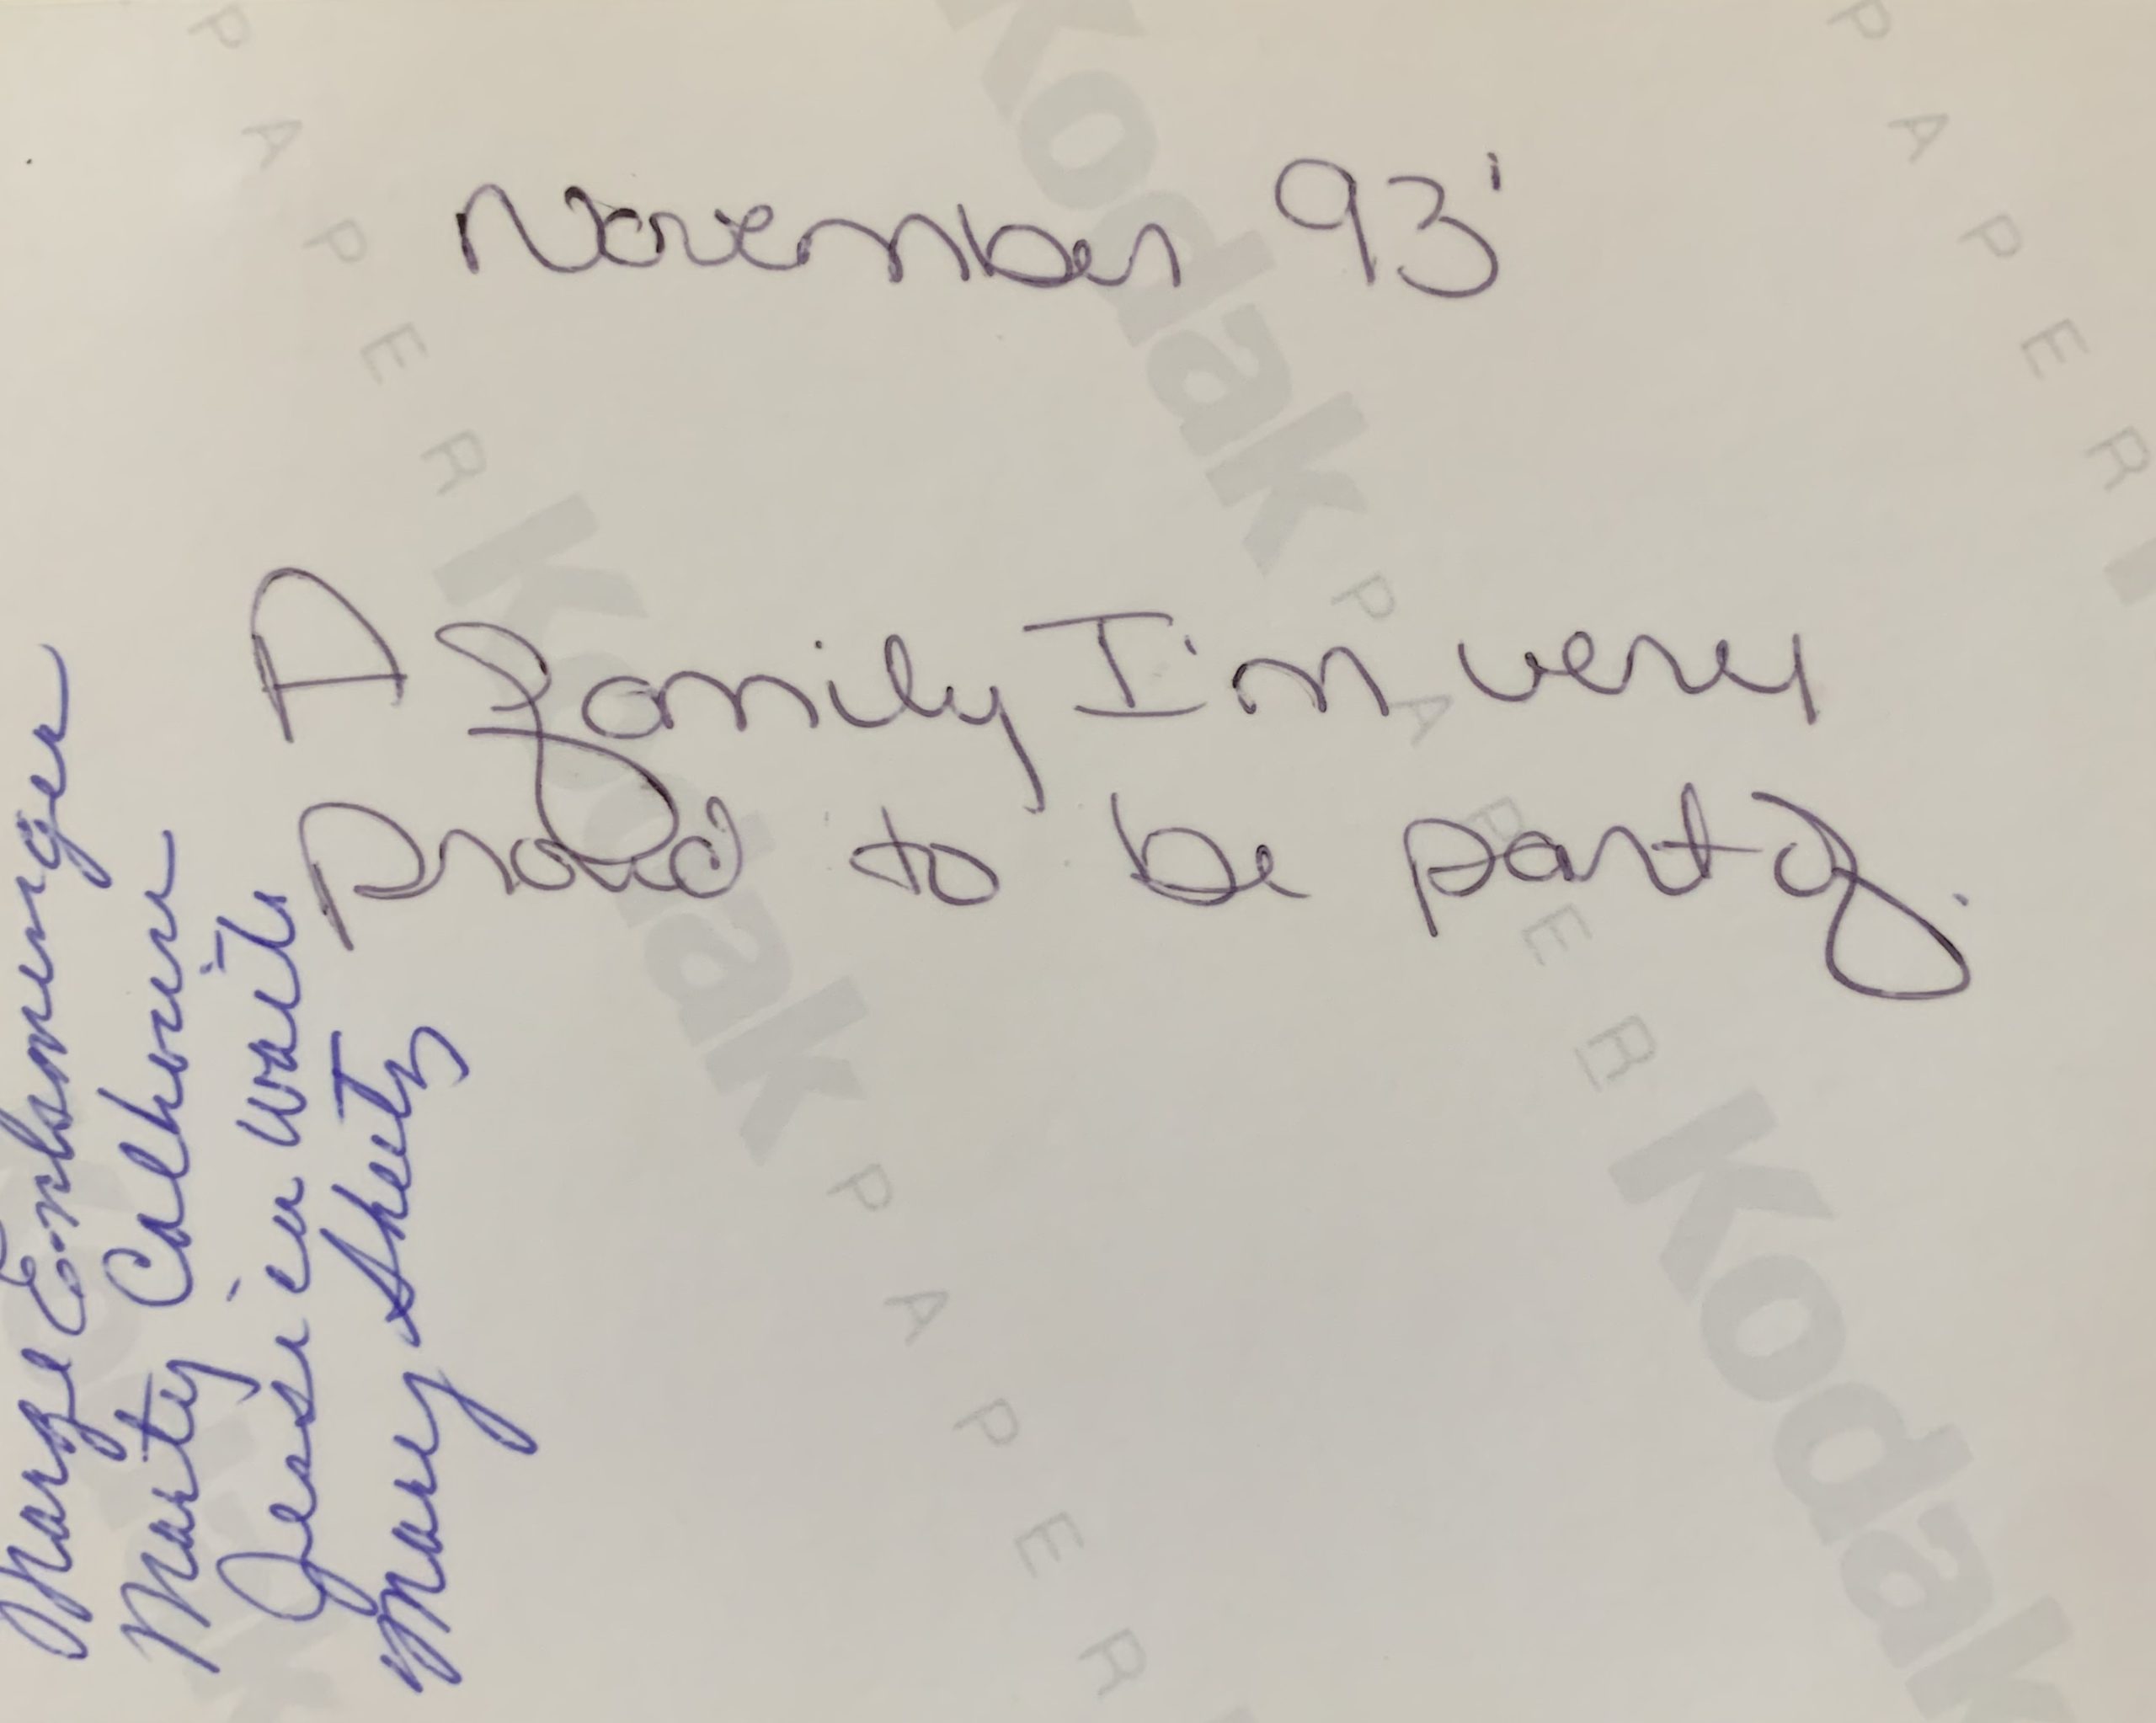 November 93'
A family I'm very
proud to be part of.
Marge Ensminger
Marty Calhoun
Jessica Wait
Mary Sheets
Kodak
PAPER
Kodak
PAPER
Kodak
PAPER
Kodak
PAPER